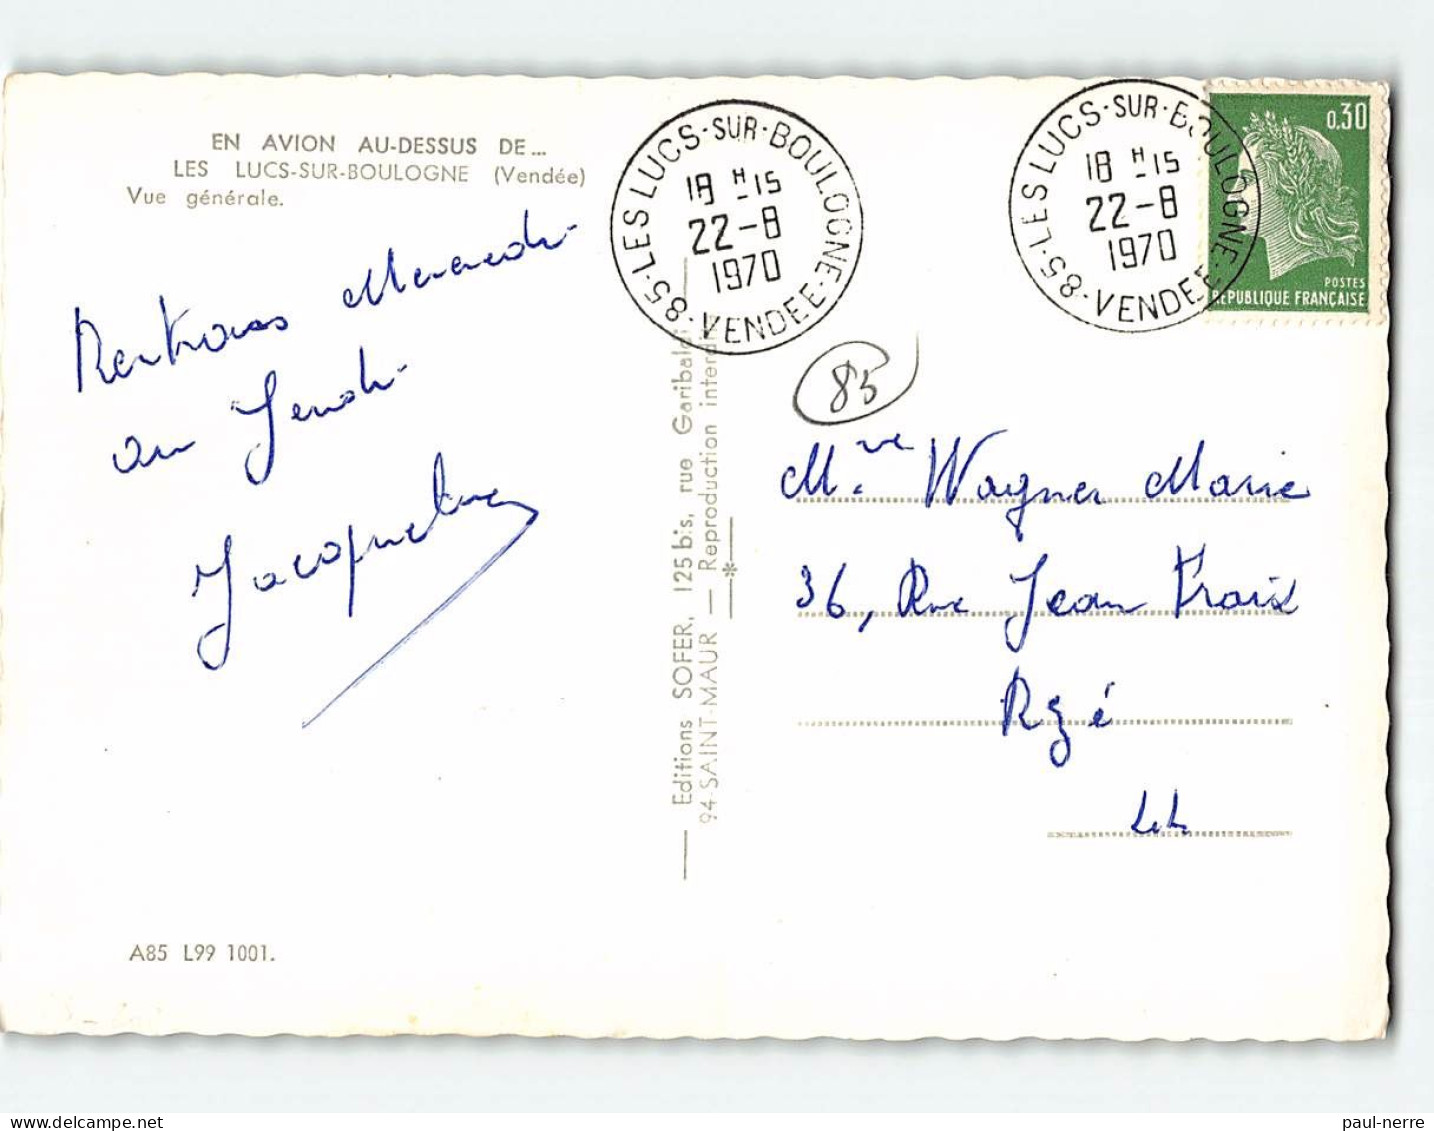 EN AVION AU-DESSUS DE...
LES LUCS-SUR-BOULOGNE (Vendée)
Vue générale.
Rentrons
ou Jeudi
Jacqueline
A85 L99 1001.
Editions SOFER, 125 bis, rue Garibaldi
94-SAINT-MAUR — Reproduction interdite
85·LES LUCS·SUR·BOULOGNE·VENDEE
18 H -15
22-8
1970
85·LES LUCS·SUR·BOULOGNE·VENDEE
18 H -15
22-8
1970
0.30
POSTES
REPUBLIQUE FRANÇAISE
85
Wagner Marie
36, Rue Jean Fraix
Rezé
L.A
paul-nerre